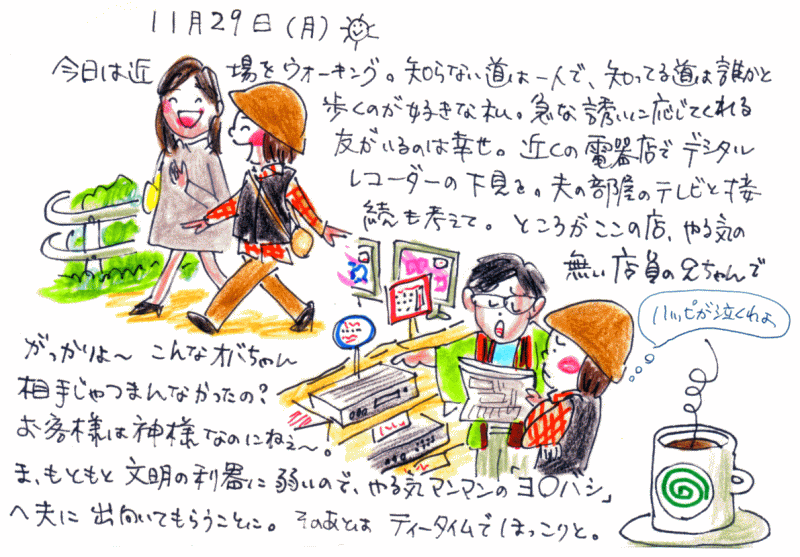 11月29日(月)
今日は近場をウォーキング。知らない道は一人で、知ってる道は誰かと
歩くのが好きな私。急な誘いに応じてくれる
友がいるのは幸せ。近くの電器店でデジタル
レコーダーの下見を。夫の部屋のテレビと接
続も考えて。ところがここの店、やる気の
無い店員の兄ちゃんで
ハッピが泣くわよ
がっかりよ〜 こんなオバちゃん
相手じゃつまんなかったの?
お客様は神様なのにねぇ〜。
ま、もともと文明の利器に弱いので、やる気マンマンのヨ〇バシ」
へ夫に出向いてもらうことに。そのあとは ティータイムでほっこりと。